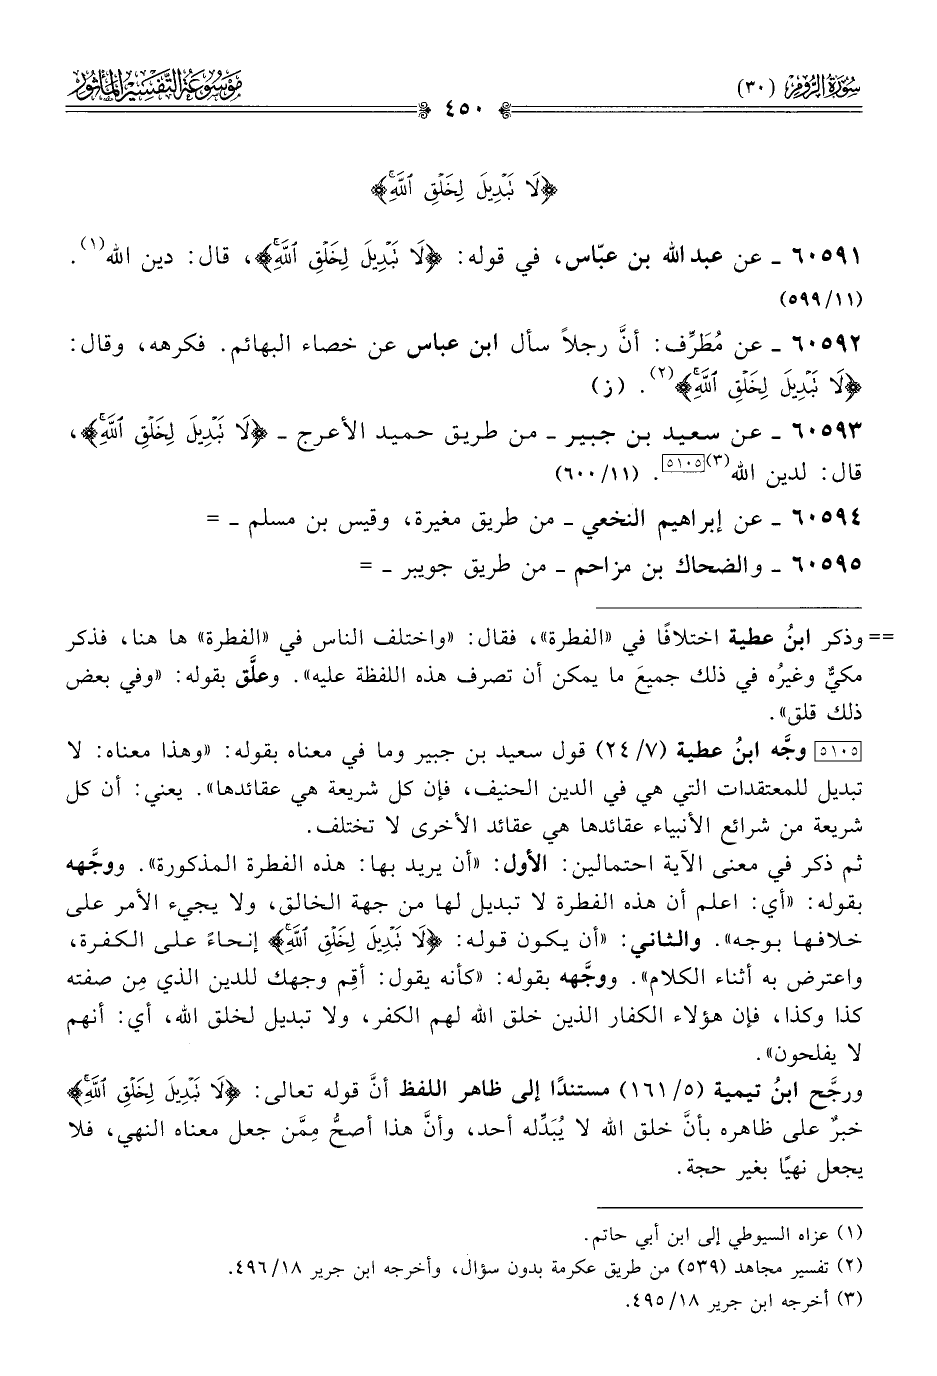 سُورَةُ الرُّومِ (٣٠)
٤٥٠
مَوْسُوعَة التَّفْسِيرِ المَأْثُور
﴿لَا نَبْدِيلَ لِخَلْقِ ٱللَّهِۚ﴾
٦٠٥٩١ ـ عن عبد الله بن عبّاس، في قوله: ﴿لَا نَبْدِيلَ لِخَلْقِ ٱللَّهِۚ﴾، قال: دين الله(١).
(٥٩٩/١١)
٦٠٥٩٢ ـ عن مُطَرِّف: أنَّ رجلاً سأل ابن عباس عن خصاء البهائم. فكرهه، وقال:
﴿لَا نَبْدِيلَ لِخَلْقِ ٱللَّهِۚ﴾(٢). (ز)
٦٠٥٩٣ ـ عن سعيد بن جبير ـ من طريق حميد الأعرج ـ ﴿لَا نَبْدِيلَ لِخَلْقِ ٱللَّهِۚ﴾،
قال: لدين الله(٣)[٥١٠٥]. (٦٠٠/١١)
٦٠٥٩٤ ـ عن إبراهيم النخعي ـ من طريق مغيرة، وقيس بن مسلم ـ =
٦٠٥٩٥ ـ والضحاك بن مزاحم ـ من طريق جويبر ـ =
== وذكر ابنُ عطية اختلافًا في «الفطرة»، فقال: «واختلف الناس في «الفطرة» ها هنا، فذكر
مكيٌّ وغيرُه في ذلك جميعَ ما يمكن أن تصرف هذه اللفظة عليه». وعلَّق بقوله: «وفي بعض
ذلك قلق».
[٥١٠٥] وجَّه ابنُ عطية (٢٤/٧) قول سعيد بن جبير وما في معناه بقوله: «وهذا معناه: لا
تبديل للمعتقدات التي هي في الدين الحنيف، فإن كل شريعة هي عقائدها». يعني: أن كل
شريعة من شرائع الأنبياء عقائدها هي عقائد الأخرى لا تختلف.
ثم ذكر في معنى الآية احتمالين: الأول: «أن يريد بها: هذه الفطرة المذكورة». ووجَّهه
بقوله: «أي: اعلم أن هذه الفطرة لا تبديل لها من جهة الخالق، ولا يجيء الأمر على
خلافها بوجه». والثاني: «أن يكون قوله: ﴿لَا نَبْدِيلَ لِخَلْقِ ٱللَّهِۚ﴾ إنحاءً على الكفرة،
واعترض به أثناء الكلام». ووجَّهه بقوله: «كأنه يقول: أقِم وجهك للدين الذي مِن صفته
كذا وكذا، فإن هؤلاء الكفار الذين خلق الله لهم الكفر، ولا تبديل لخلق الله، أي: أنهم
لا يفلحون».
ورجَّح ابنُ تيمية (١٦١/٥) مستندًا إلى ظاهر اللفظ أنَّ قوله تعالى: ﴿لَا نَبْدِيلَ لِخَلْقِ ٱللَّهِۚ﴾
خبرٌ على ظاهره بأنَّ خلق الله لا يُبَدِّله أحد، وأنَّ هذا أصحُّ مِمَّن جعل معناه النهي، فلا
يجعل نهيًا بغير حجة.
(١) عزاه السيوطي إلى ابن أبي حاتم.
(٢) تفسير مجاهد (٥٣٩) من طريق عكرمة بدون سؤال، وأخرجه ابن جرير ١٨/٤٩٦.
(٣) أخرجه ابن جرير ١٨/٤٩٥.